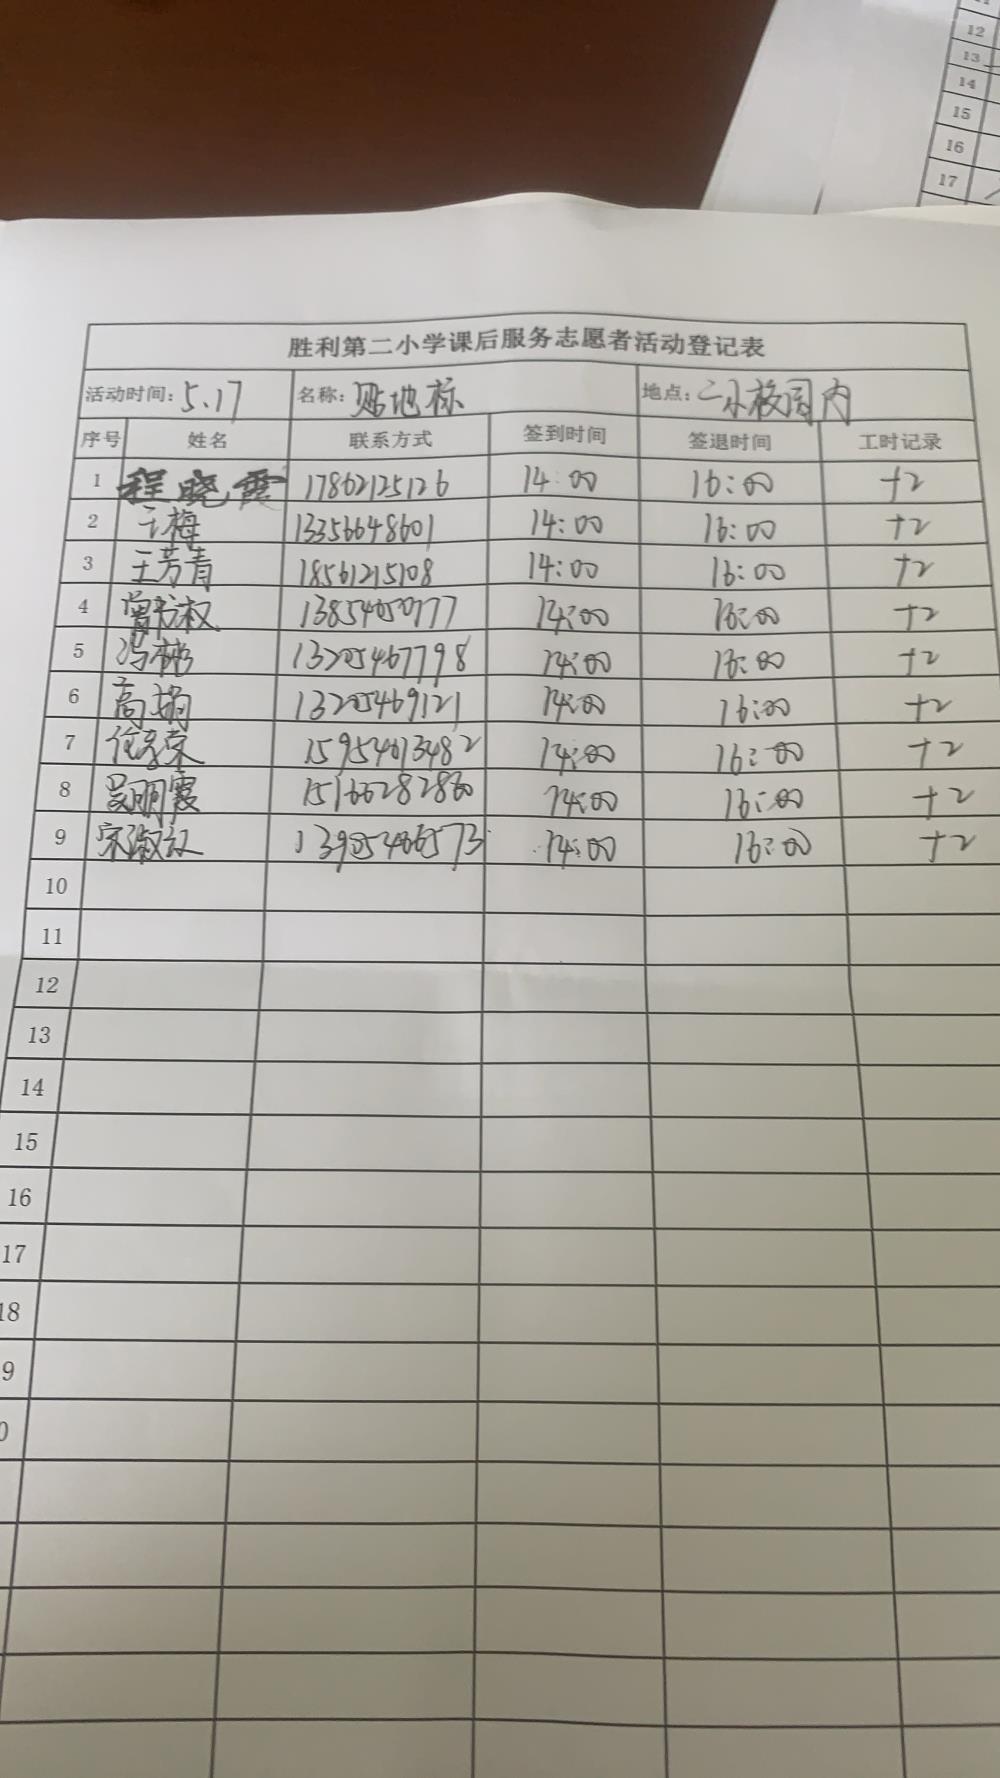 11
12
13
14
15
16
17
胜利第二小学课后服务志愿者活动登记表
活动时间: 5.17 名称: 贴地标 地点: 二小校园内
序号 姓名 联系方式 签到时间 签退时间 工时记录
1 程晓霞 17862125126 14:00 16:00 +2
2 王梅 13356648601 14:00 16:00 +2
3 王芳青 18561215108 14:00 16:00 +2
4 13854650177 14:00 16:00 +2
5 冯彬 13205467798 14:00 16:00 +2
6 高娟 13205469121 14:00 16:00 +2
7 任秀荣 15954613482 14:00 16:00 +2
8 吴明霞 14:00 16:00 +2
9 宋淑红 14:00 16:00 +2
10
11
12
13
14
15
16
17
18
9
0